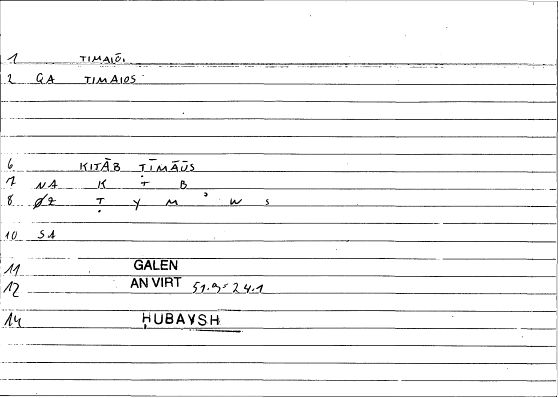 1 TIMAIO.
2 GA TIMAIOS
6 KITĀB ṬĪMĀUS
7 NA K T B
8 ØZ Ṭ Y M ' W S
10 SA
11 GALEN
12 AN VIRT 51.9 = 24.1
14 ḤUBAYSH